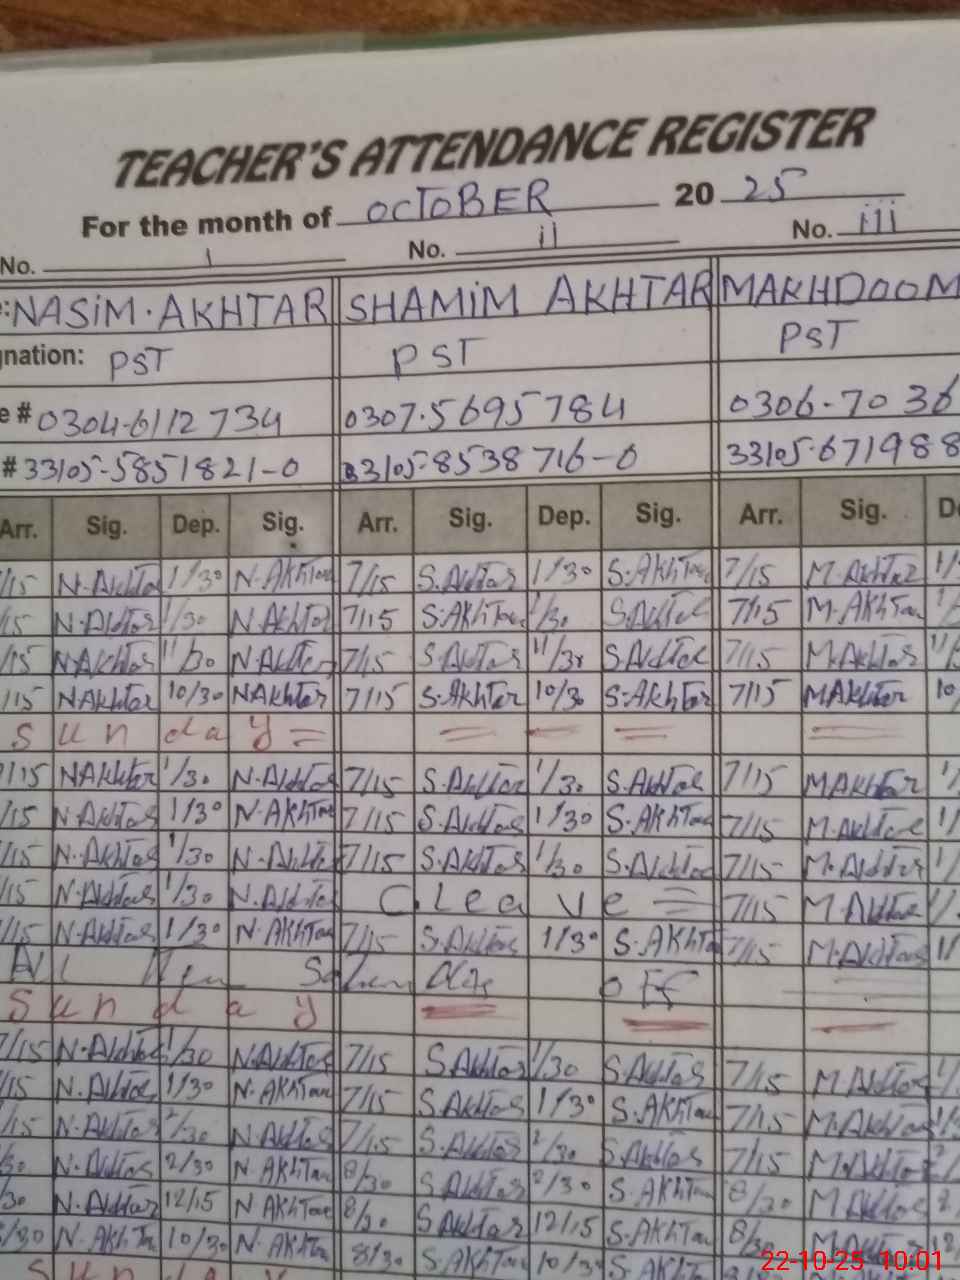 TEACHER'S ATTENDANCE REGISTER
For the month of OCTOBER 20 25
No. i No. ii No. iii
NASIM. AKHTAR SHAMIM AKHTAR MAKHDOOM
gnation: PST PST PST
e # 0304-6112734 0307-5695784 0306-70 36
# 33105-5851821-0 33105-8538716-0 33105-671988
Arr. Sig. Dep. Sig. Arr. Sig. Dep. Sig. Arr. Sig. De
/15 N.Akhtar 1/30 N.Akhtar 7/15 S.Akhtar 1/30 S.Akhtar 7/15 M.Akhtar 1/
/15 N.Akhtar 1/30 N.Akhtar 7/15 S.Akhtar 1/30 S.Akhtar 7/15 M.Akhtar
/15 NAkhtar 11/30 N.Akhtar 7/15 S.Akhtar 11/30 S.Akhtar 7/15 M.Akhtar 11/
/15 NAkhtar 10/30 NAkhtar 7/15 S.Akhtar 10/30 S.Akhtar 7/15 MAkhtar 10
Sunday =
7/15 NAkhtar 1/30 N.Akhtar 7/15 S.Akhtar 1/30 S.Akhtar 7/15 MAkhtar 1/
/15 N.Akhtar 1/30 N.Akhtar 7/15 S.Akhtar 1/30 S.Akhtar 7/15 M.Akhtar 1/
/15 N.Akhtar 1/30 N.Akhtar 7/15 S.Akhtar 1/30 S.Akhtar 7/15 M.Akhtar 1/
/15 N.Akhtar 1/30 N.Akhtar C.Leave = 7/15 M.Akhtar 1/
/15 N.Akhtar 1/30 N.Akhtar 7/15 S.Akhtar 1/30 S.Akhtar 7/15 M.Akhtar 11/
All OFF
Sunday
7/15 N.Akhtar 1/30 N.Akhtar 7/15 S.Akhtar 1/30 S.Akhtar 7/15 M.Akhtar 1/
/15 N.Akhtar 1/30 N.Akhtar 7/15 S.Akhtar 1/30 S.Akhtar 7/15 M.Akhtar
/15 N.Akhtar 2/30 N.Akhtar 7/15 S.Akhtar 2/30 S.Akhtar 7/15 M.Akhtar 2/
/30 N.Akhtar 2/30 N.Akhtar 8/30 S.Akhtar 2/30 S.Akhtar 8/30 M.Akhtar 2
/30 N.Akhtar 12/15 N Akhtar 8/30 S Akhtar 12/15 S.Akhtar 8/30 M.Akhtar 12
8/30 N.Akhtar 10/30 N.Akhtar 8/30 S.Akhtar 10/30 S.Akhtar
Sunday
22-10-25 10:01